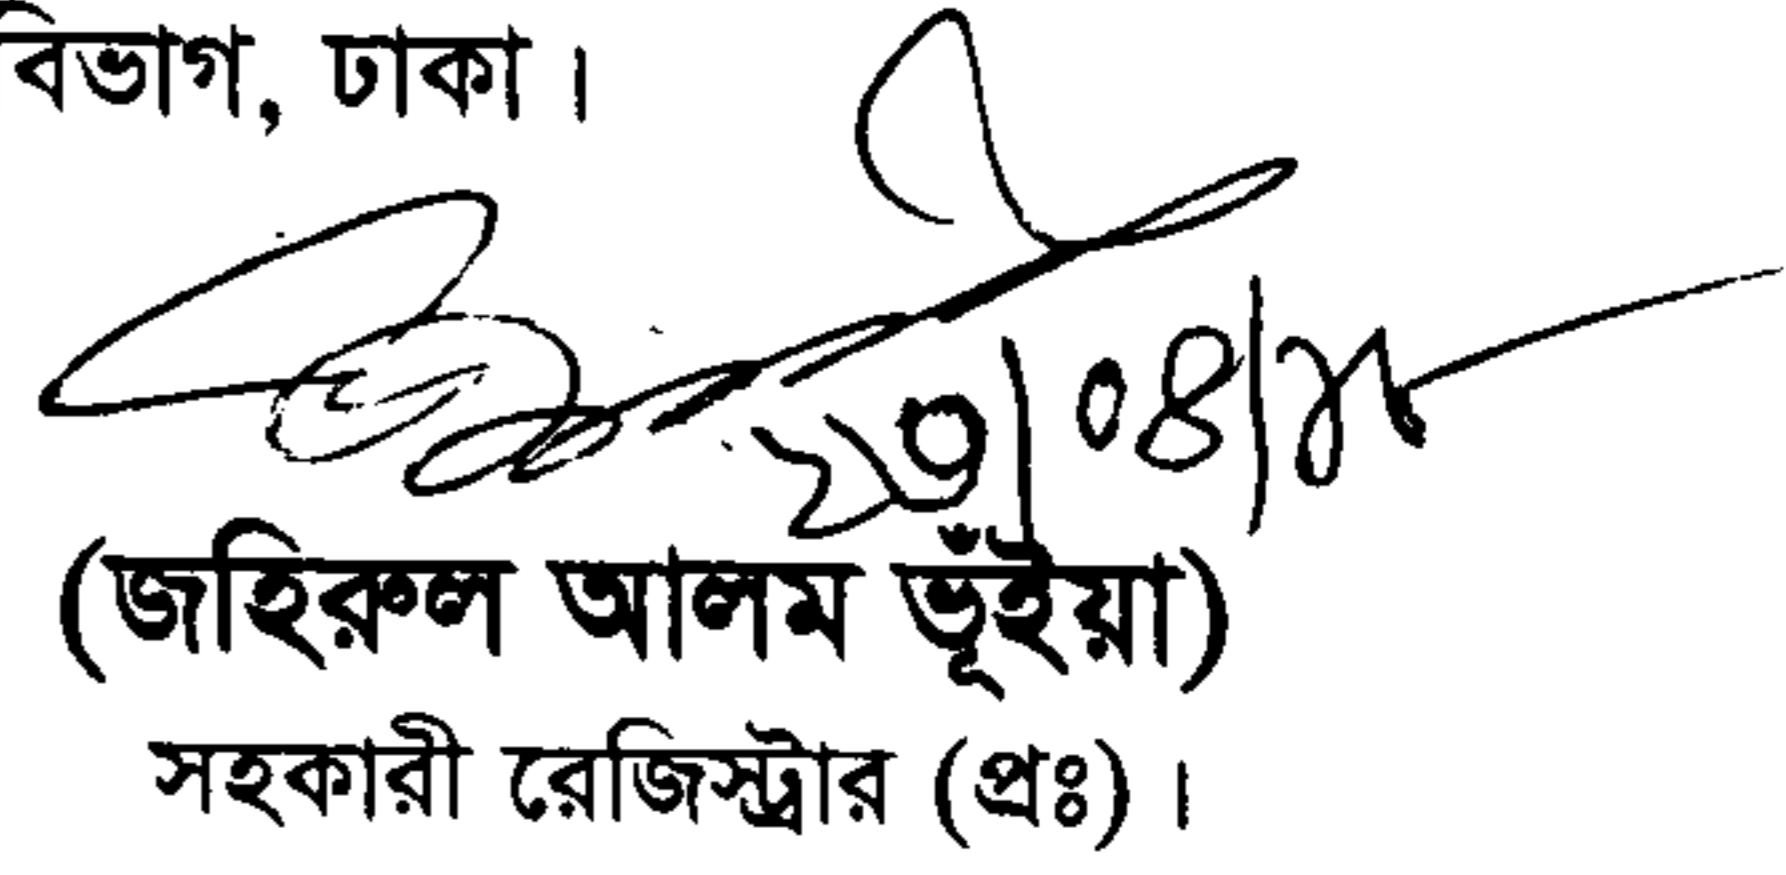 বিভাগ, ঢাকা।
(জহিরুল আলম ভূঁইয়া)
সহকারী রেজিস্ট্রার (প্রঃ)।